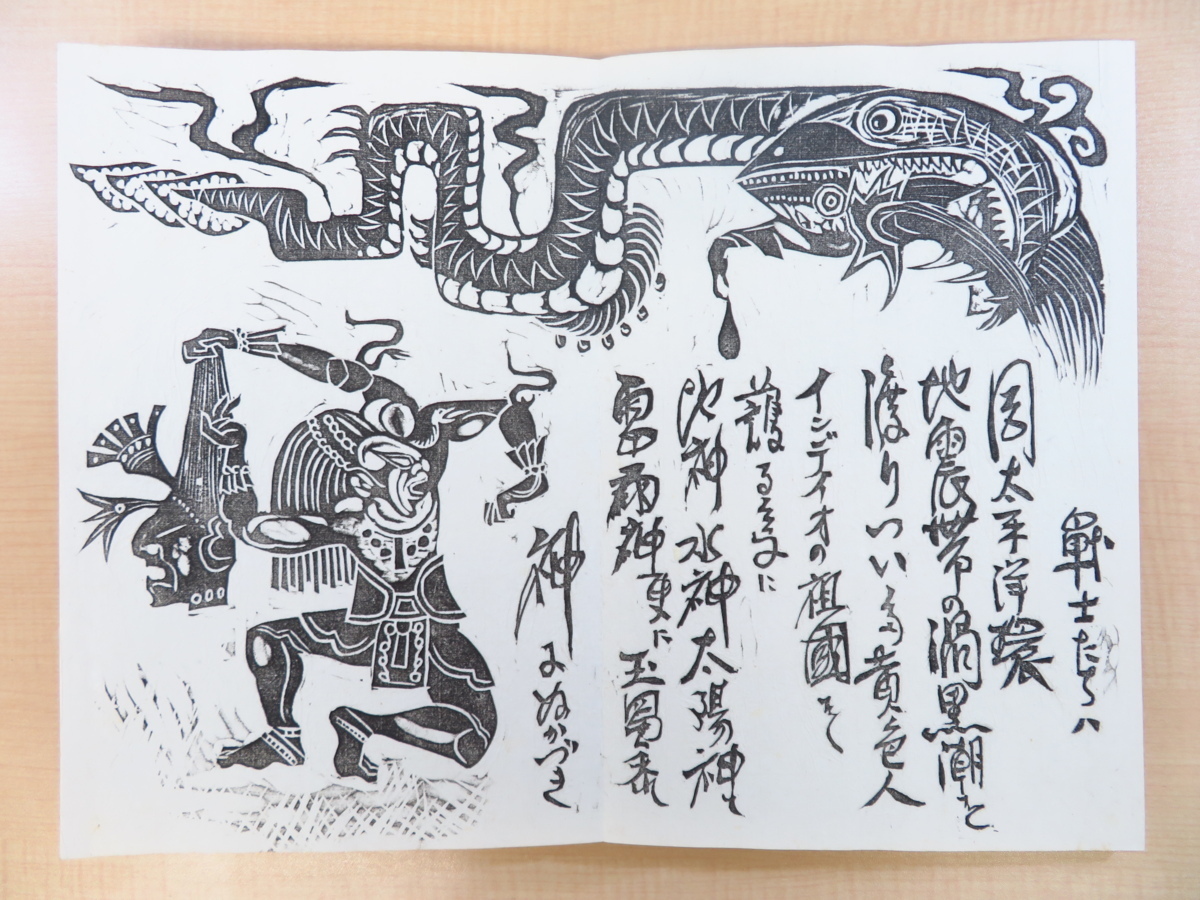 戦士たちハ
太平洋環
地震帯の渦黒潮を
渡りついた黄色人
インデイオの祖國を
護る為に
神水神太陽神
雷雨神更に玉蜀黍
神にぬかづき